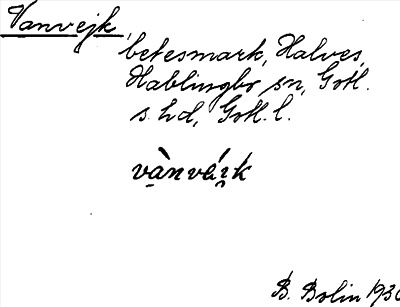 Vanvejk,
betesmark, Halves,
Hablingbo sn, Gotl.
s. hd, Gotl. l.
va̠̍nvei̯k
B. Bolin 1930